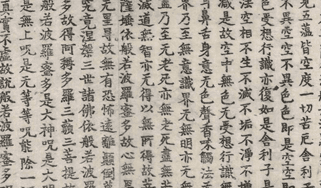 五蘊皆空度一切苦厄舍利子
不異空空不異色色即是空
色受想行識亦復如是舍利子是
法空相不生不滅不垢不淨不增
減是故空中無色无受想行識
鼻舌身意无色聲香味觸法
界乃至无意識界无無明亦无
盡乃至无老死亦無老死盡無
滅道无智亦无得以無所得故
薩埵依般若波羅蜜多故心無
无罣礙故无有恐怖遠離顛倒
究竟涅槃三世諸佛依般若波羅
多故得阿耨多羅三藐三菩提
般若波羅蜜多是大神咒是大明
是無上呪是无等等呪能除一
真實不虛故說般若波羅蜜多